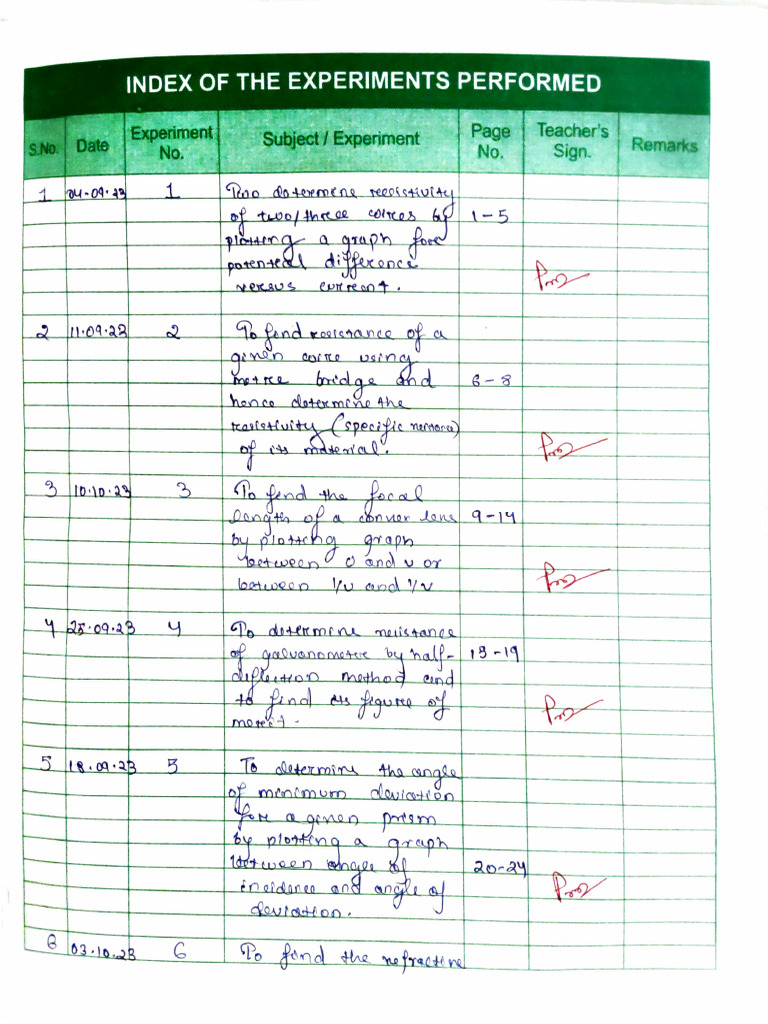 INDEX OF THE EXPERIMENTS PERFORMED
S.No. Date Experiment No. Subject / Experiment Page No. Teacher's Sign. Remarks
1 04-09-23 1 Two determine resistivity
of two/three wires by 1-5
plotting a graph for
potential difference
versus current.
2 11.09.23 2 To find resistance of a
given wire using
metre bridge and 6-8
hence determine the
resistivity (specific
of its material.
3 10.10.23 3 To find the focal
length of a convex lens 9-14
by plotting graph
between U and v or
between 1/U and 1/v
4 25.09.23 4 To determine resistance
of galvanometre by half- 15-19
deflection method and
to find its figure of
merit.
5 18.09.23 5 To determine the angle
of minimum deviation
for a given prism
by plotting a graph
between angle of 20-24
incidence and angle of
deviation.
6 03.10.23 6 To find the refractive